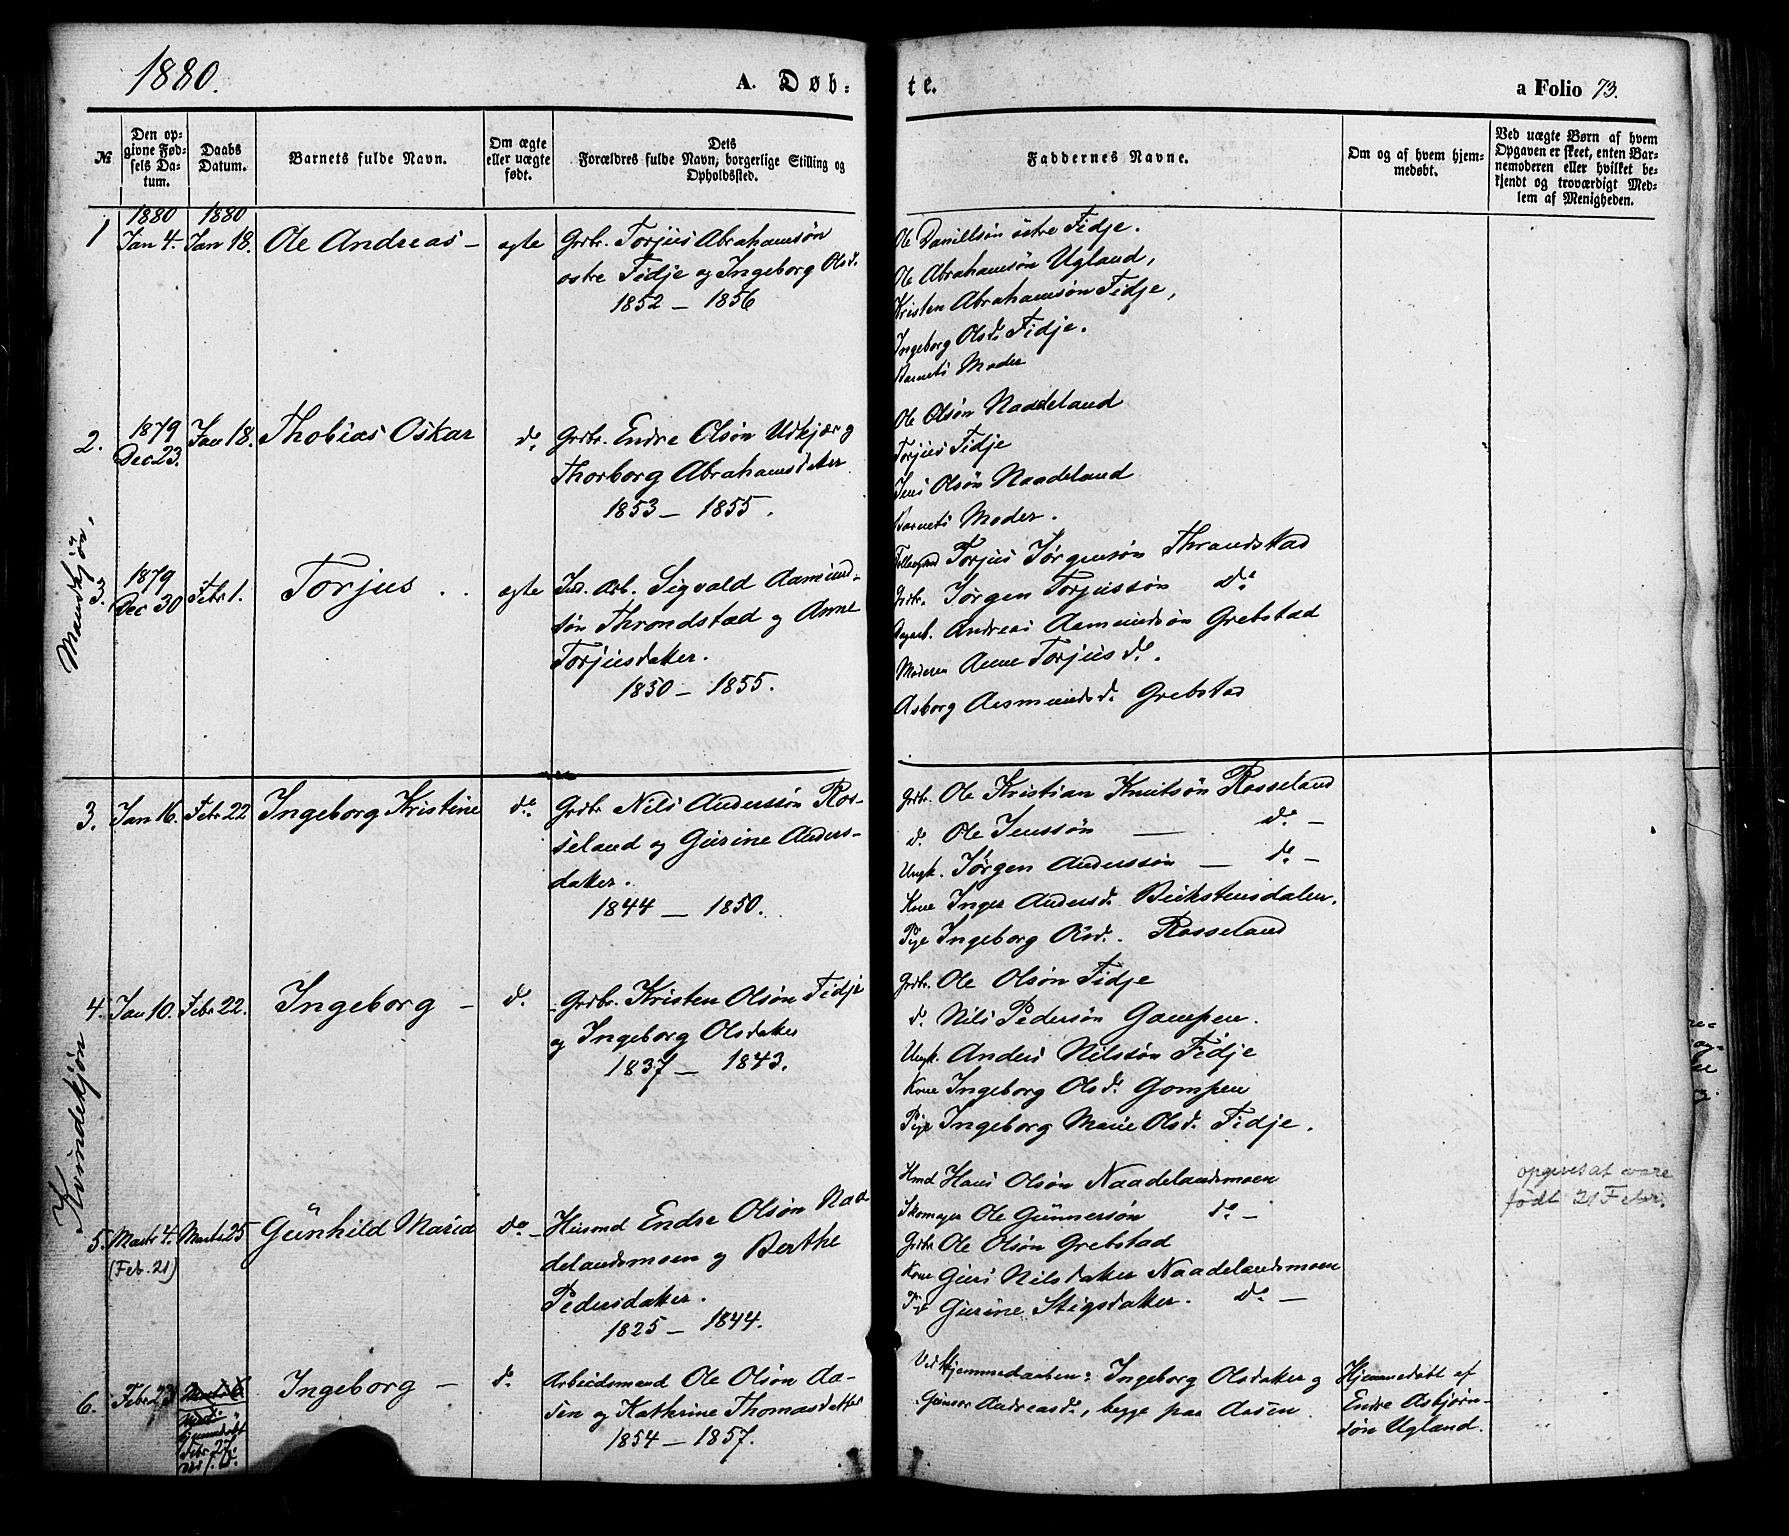 1880.
A. Døb:
te.
a Folio 73.
№
Den op-
givne Fød-
sels Da-
tum.
Daabs
Datum.
Barnets fulde Navn.
Om ægte
eller uægte
født.
Dets
Forældres fulde Navn, borgerlige Stilling og
Opholdssted.
Faddernes Navne.
Om og af hvem hjem-
medøbt.
Ved uægte Børn af hvem
Opgaven er skeet, enten Bar-
nemoderen eller hvilket be-
kjendt og troværdigt Med-
lem af Menigheden.
Mandkjøn.
1880 1880
1 Jan 4. Jan 18. Ole Andreas — ægte Grdbr. Torjus Abrahamsøn
østre Fidje og Ingeborg Olsd.
1852 — 1856
Ole Daniellsøn østre Fidje.
Ole Abrahamsøn Ugland,
Kristen Abrahamsøn Fidje,
Ingeborg Olsd. Fidje.
Barnets Moder
2. 1879
Dec 23. Jan 18. Thobias Oskar do. Grdbr. Endre Olsøn Udkjær og
Thorborg Abrahamsdatter
1853 — 1855.
Ole Olsøn Naadeland
Torjus Fidje
Jens Olsøn Naadeland
Barnets Moder.
3. 1879
Dec 30 Febr 1. Torjus . . ægte Ind. Arb. Sigvald Aamund-
søn Throndstad og Anne
Torjusdatter.
1850 — 1855.
Torjus Jørgensøn Thrandstad
Grdbr. Jørgen Torjussøn do.
Andreas Aamundsøn Grebstad
Moderen Anne Torjusd.
Asborg Aasmundsd. Grebstad
Kvindekjøn
3. Jan 16. Febr 22 Ingeborg Kristine do. Grdbr Nils Anderssøn Ros-
seland og Gurine Anders-
datter.
1844 — 1850.
Grdbr. Ole Kristian Knutsøn Rosseland
d. Ole Jenssøn — do. —
Ungk. Jørgen Anderssøn — do. —
Kone Inger Andersd. Birkstensdalen.
Pige Ingeborg Olsd. Rosseland
4. Jan 10. Febr 22. Ingeborg — d. Grdbr. Kristen Olsøn Fidje
og Ingeborg Olsdatter
1837 — 1843.
Grdbr. Ole Olsøn Fidje
d. Nils Pedersøn Gampen.
Ungk. Anders Nilssøn Fidje
Kone Ingeborg Olsd. Gompen
Pige Ingeborg Marie Olsd. Fidje.
5. Marts 4. Marts 25 Gunhild Maria do. — Husmd Endre Olsøn Naa-
(Feb. 21)
delandsmoen og Berthe
Pedersdatter.
1825 — 1844.
Hmd Hans Olsøn Naadelandsmoen
Skomager Ole Gunnersøn do —
Grdbr Ole Olsøn Grebstad
Kone Guri Nilsdatter Naadelandsmoen
Pige Gurine Stigsdatter. do. —
opgives at være
født 21 Febr.
6. Febr 23 Ingeborg — d. Arbeidsmand Ole Olsøn Aa-
sen og Kathrine Thomasdatter
1854 — 1857.
hjemmedøbt
Febr 27.
Ved Hjemmedaaben: Ingeborg Olsdatter og
Gunvor Andreasd., begge paa Aasen.
Hjemmedøbt af
Endre Asbjørn-
søn Ugland.